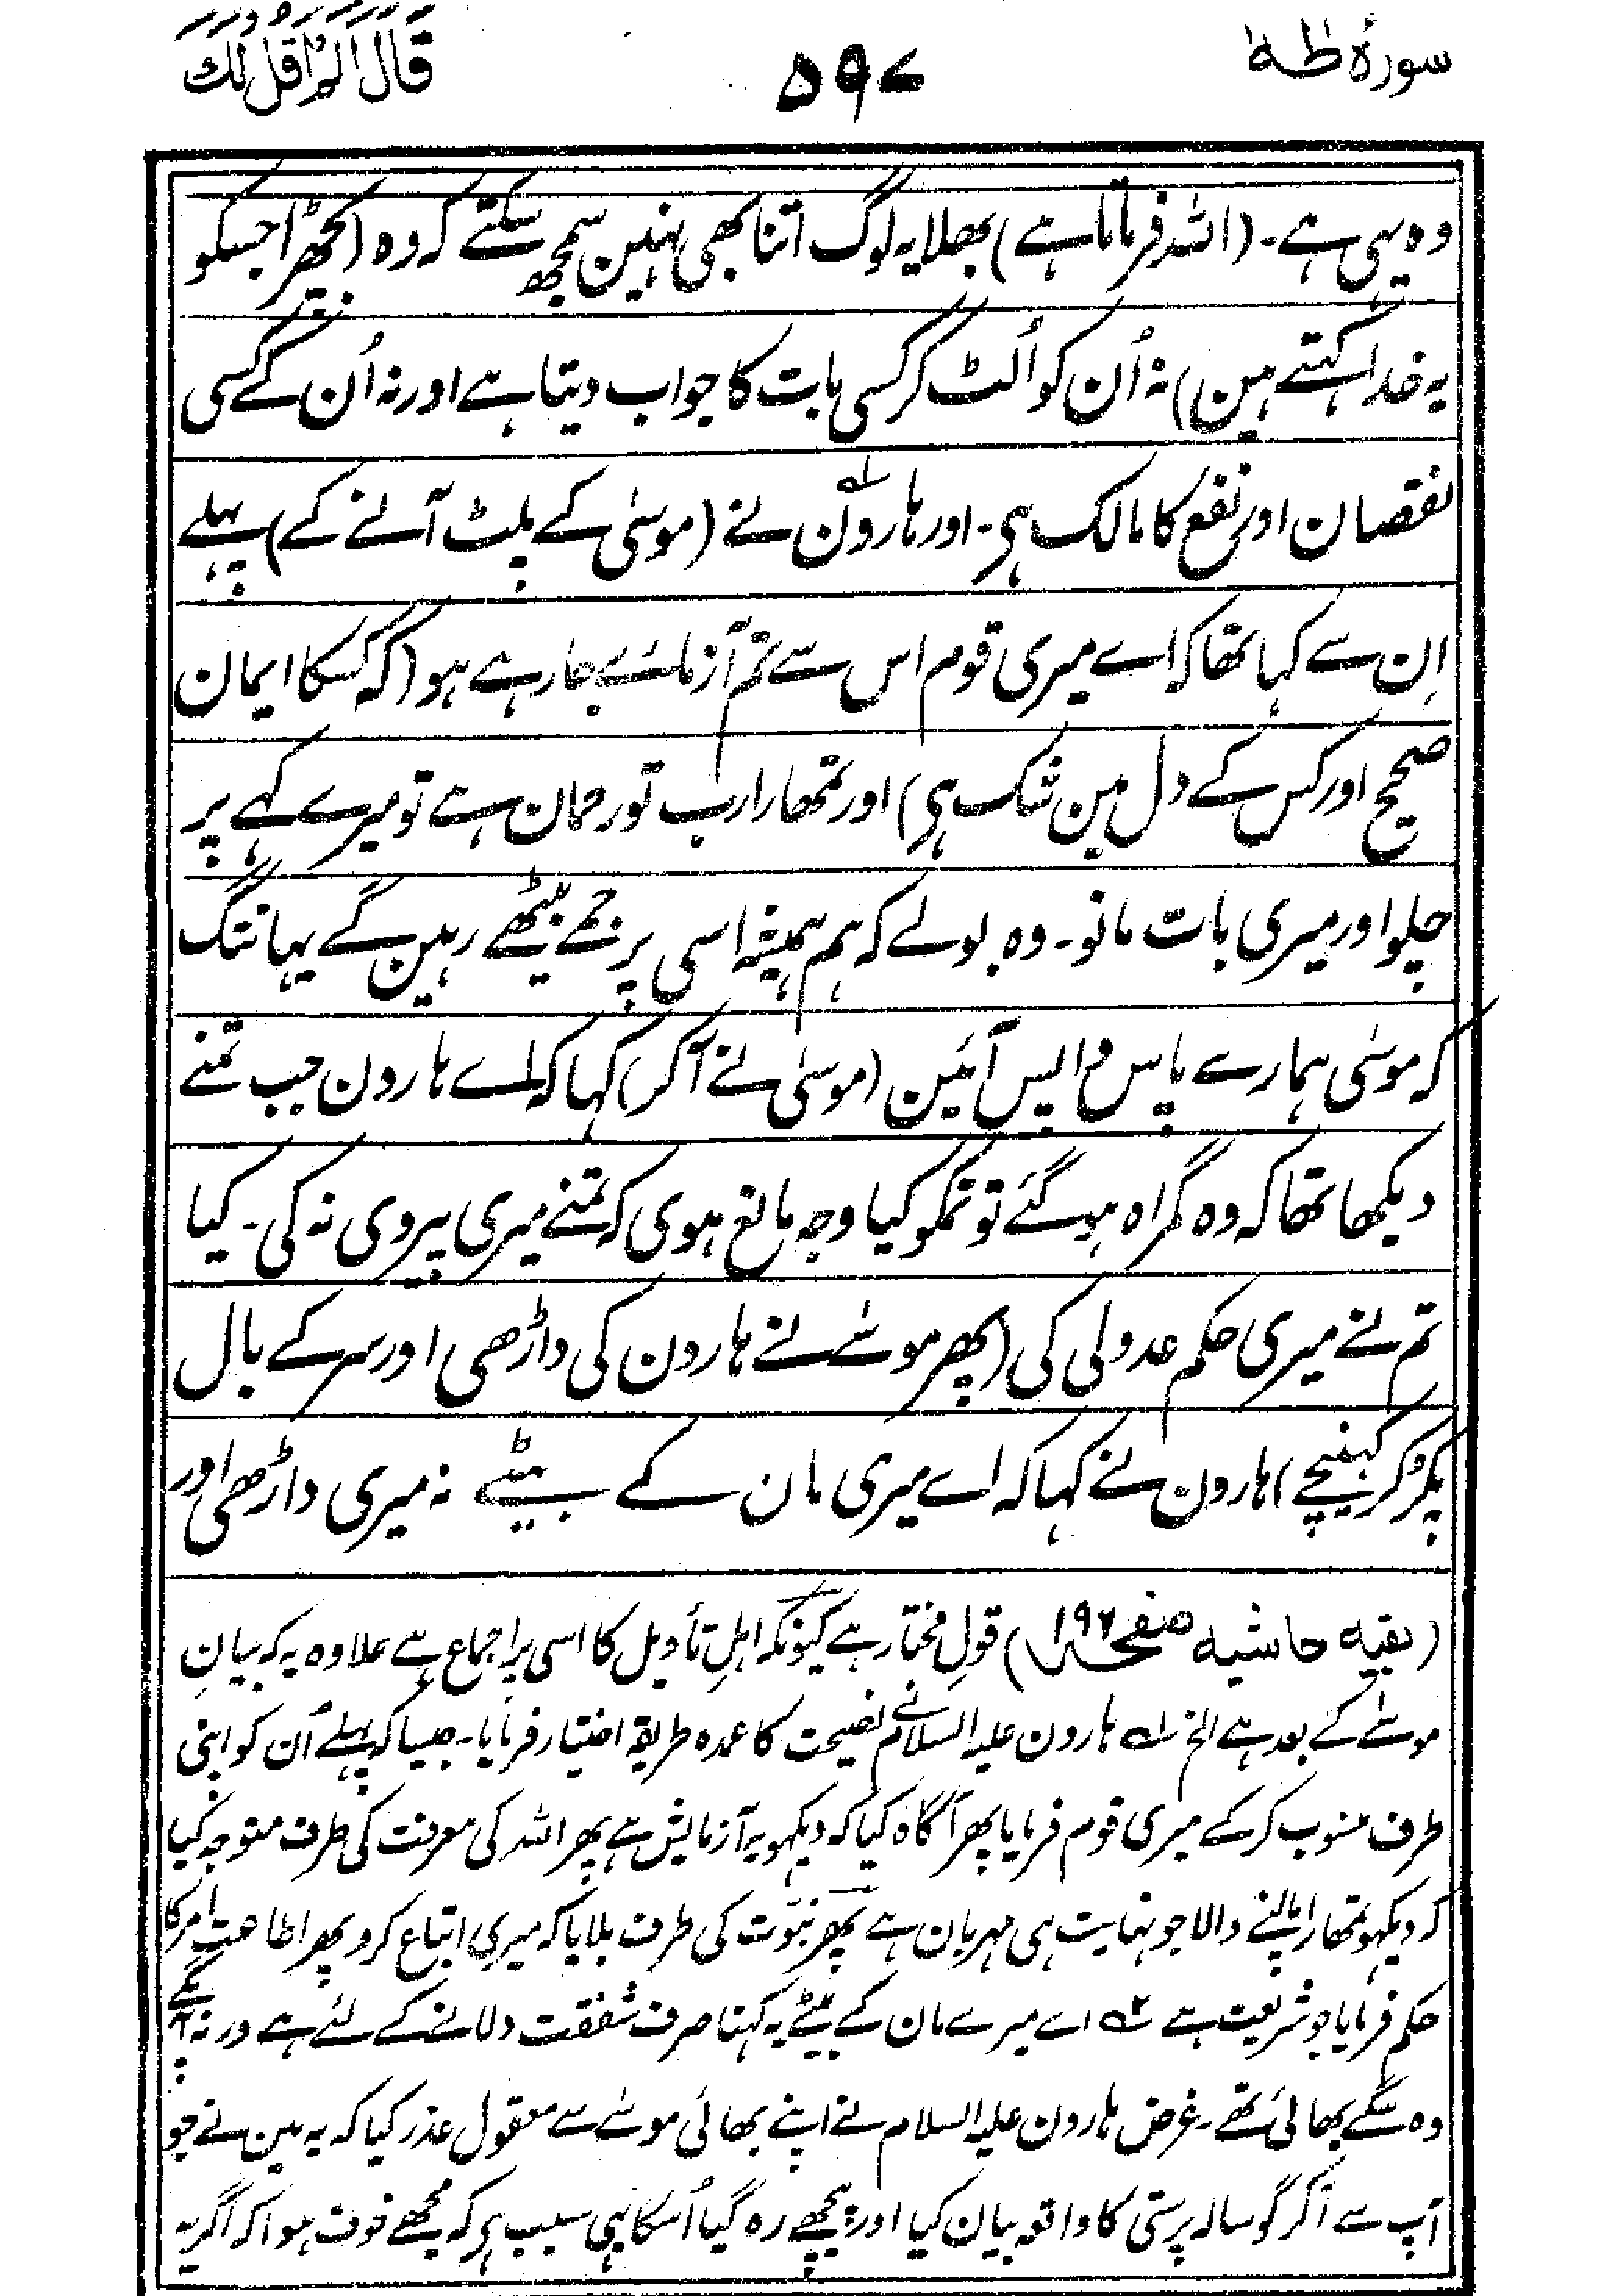 سورۂ طٰهٰ
۵۹۷
قَالَ اَلَمْ اَقُلْ لَكَ
وہ یہی ہے۔ (اللہ فرماتا ہے) بھلا یہ لوگ اتنا بھی نہین سمجھ سکتے کہ وہ (بچھڑا جسکو
یہ خدا کہتے ہین) نہ اُن کو اُلٹ کر کسی بات کا جواب دیتا ہے اور نہ اُن کے کسی
نقصان اور نفع کا مالک ہی۔ اور ہارونؑ نے (موسیٰ کے پلٹ آنے کے) پہلے
اِن سے کہا تھا کہ اے میری قوم اس سے تم آزمائے جارہے ہو (کہ کسکا ایمان
صحیح اور کس کے دل مین شک ہی) اور تمھارا رب تو رحمان ہے تو میرے کہے پر
چلو اور میری بات مانو۔ وہ بولے کہ ہم ہمیشہ اسی پر جمے بیٹھے رہین گے یہانتک
کہ موسیٰ ہمارے پاس واپس آئین (موسیٰ نے آکر) کہا کہ اے ہارون جب تمنے
دیکھا تھا کہ وہ گمراہ ہوگئے تو تمکو کیا وجہ مانع ہوی کہ تمنے میری پیروی نہ کی۔ کیا
تم نے میری حکم عدولی کی (پھر موسےٰ نے ہارون کی داڑھی اور سر کے بال
پکڑ کر کہینچے) ہارون نے کہا کہ اے میری مان کے بیٹے نہ میری داڑھی اور
(بقیہ حاشیہ صفحہ ۱۹۶) قولِ مختار ہے کیونکہ اہلِ تأویل کا اسی پر اجماع ہے علاوہ یہ کہ بیانِ
موسےٰ کے بعد ہے الخ ۱؎ ہارون علیہ السلام نے نصیحت کا عمدہ طریقہ اختیار فرمایا۔ جیسا کہ پہلے اُن کو اپنی
طرف منسوب کرکے میری قوم فرمایا پھر آگاہ کیا کہ دیکھو یہ آزمایش ہے پھر اللہ کی معرفت کی طرف متوجہ کیا
کہ دیکھو تمھارا پالنے والا جو نہایت ہی مہربان ہے پھر نبوّت کی طرف بلایا کہ میری اتباع کرو پھر اطاعت امر کا
حکم فرمایا جو شریعت ہے ۲؎ اے میرے مان کے بیٹے یہ کہنا صرف شفقت دلانے کے لئے ہے ورنہ آپکے
وہ سگے بھائی تھے۔ غرض ہارون علیہ السلام نے اپنے بھائی موسےٰ سے معقول عذر کیا کہ یہ مین نے جو
آپ سے آکر گوسالہ پرستی کا واقعہ بیان کیا اور پیچھے رہ گیا اُسکا یہی سبب ہے کہ مجھے خوف ہوا کہ اگر یہ